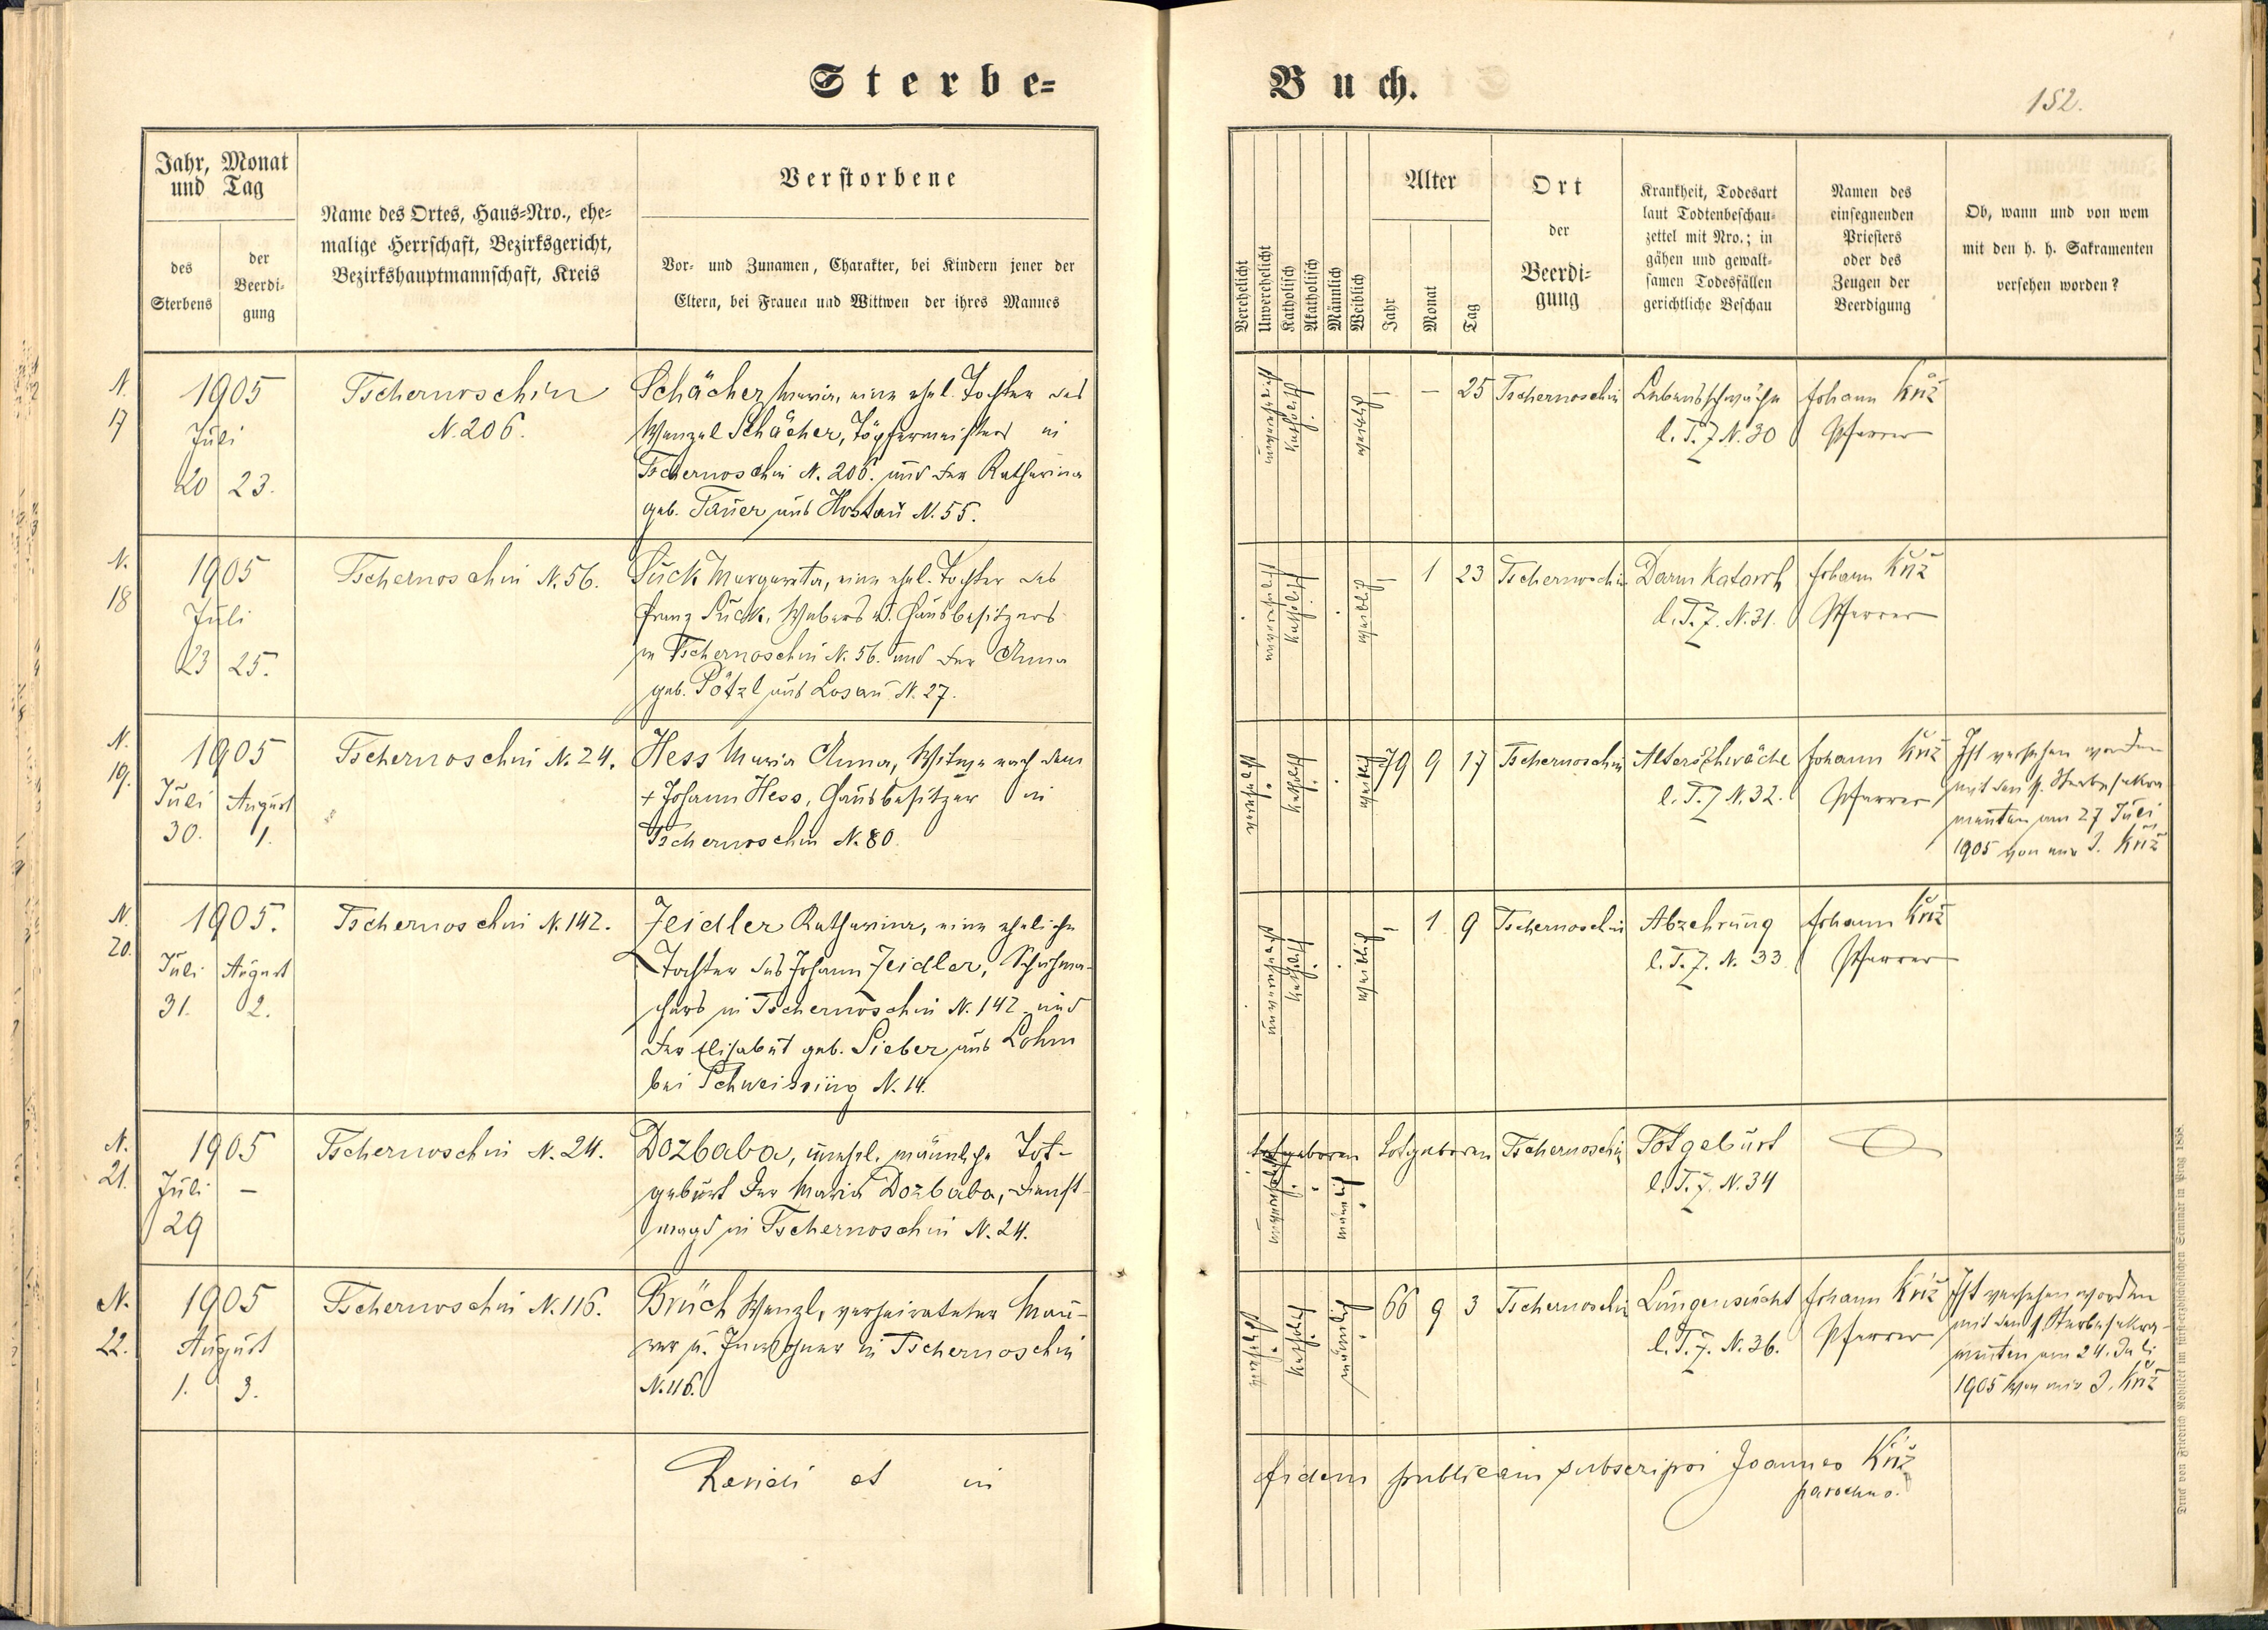 Sterbe=
Buch.
152.
Jahr, Monat
und Tag
des
Sterbens
der
Beerdi-
gung
Name des Ortes, Haus=Nro., ehe=
malige Herrschaft, Bezirksgericht,
Bezirkshauptmannschaft, Kreis
Verstorbene
Vor- und Zunamen, Charakter, bei Kindern jener der
Eltern, bei Frauen und Wittwen der ihres Mannes
Verehelicht
Unverehelicht
Katholisch
Akatholisch
Männlich
Weiblich
Alter
Jahr
Monat
Tag
Ort
der
Beerdi=
gung
Krankheit, Todesart
laut Todtenbeschau-
zettel mit Nro.; in
gähen und gewalt-
samen Todesfällen
gerichtliche Beschau
Namen des
einsegnenden
Priesters
oder des
Zeugen der
Beerdigung
Ob, wann und von wem
mit den h. h. Sakramenten
versehen worden?
N.
17
1905
Juli
20 23.
Tschernoschin
N. 206.
Schächer Maria, eine ehel. Tochter des
Wenzel Schächer, Töpfermeisters in
Tschernoschin N. 206. und der Katharina
geb. Tauer aus Hostau N. 55.
katholisch
weiblich
– – 25
Tschernoschin
Lebensschwäche
l. T. Z. N. 30
Johann Kříž
Pfarrer
N.
18
1905
Juli
23 25.
Tschernoschin N. 56.
Lück Margareta, eine ehel. Tochter des
Franz Lück, Webers u. Hausbesitzers
in Tschernoschin N. 56. und der Anna
geb. Pötzl aus Losau N. 27.
katholisch
weiblich
– 1 23
Tschernoschin
Darmkatarrh
l. T. Z. N. 31.
Johann Kříž
Pfarrer
N.
19.
1905
Juli August
30. 1.
Tschernoschin N. 24.
Hess Maria Anna, Witwe nach dem
+ Johann Hess, Hausbesitzer in
Tschernoschin N. 80.
katholisch
weiblich
79 9 17
Tschernoschin
Altersschwäche
l. T. Z. N. 32.
Johann Kříž
Pfarrer
Ist versehen worden
mit den h. Sterbesakra-
menten am 27 Juli
1905 von mir J. Kříž
N.
20.
1905.
Juli August
31. 2.
Tschernoschin N. 142.
Zeidler Katharina, eine eheliche
Tochter des Johann Zeidler, Schuhma-
chers in Tschernoschin N. 142 und
der Elisabet geb. Sieber aus Lohm
bei Schweissing N. 14.
katholisch
weiblich
– 1 9
Tschernoschin
Abzehrung
l. T. Z. N. 33
Johann Kříž
Pfarrer
N.
21.
1905
Juli –
29
Tschernoschin N. 24.
Dozbaba, unehel. männliche Tot-
geburt der Maria Dozbaba, Dienst-
magd in Tschernoschin N. 24.
totgeboren
männlich
totgeboren
Tschernoschin
Totgeburt
l. T. Z. N. 34
N.
22.
1905
August
1. 3.
Tschernoschin N. 116.
Brüch Wenzl, verheirateter Mau-
rer u. Inwohner in Tschernoschin
N. 116.
katholisch
männlich
66 9 3
Tschernoschin
Lungensucht
l. T. Z. N. 36.
Johann Kříž
Pfarrer
Ist versehen worden
mit den h. Sterbesakra-
menten am 24. Juli
1905 von mir J. Kříž
Revidi et in
fidem publicam subscripsi Joannes Kříž
parochus.
Druck von Friedrich Rohliček im fürsterzbischöflichen Seminär in Prag 1858.